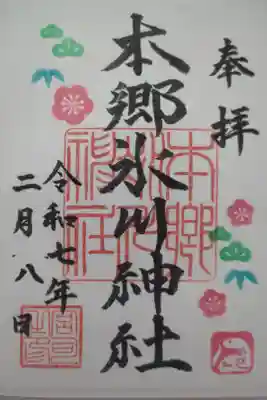 奉拝
本郷氷川神社
令和七年
二月八日
本郷氷川神社